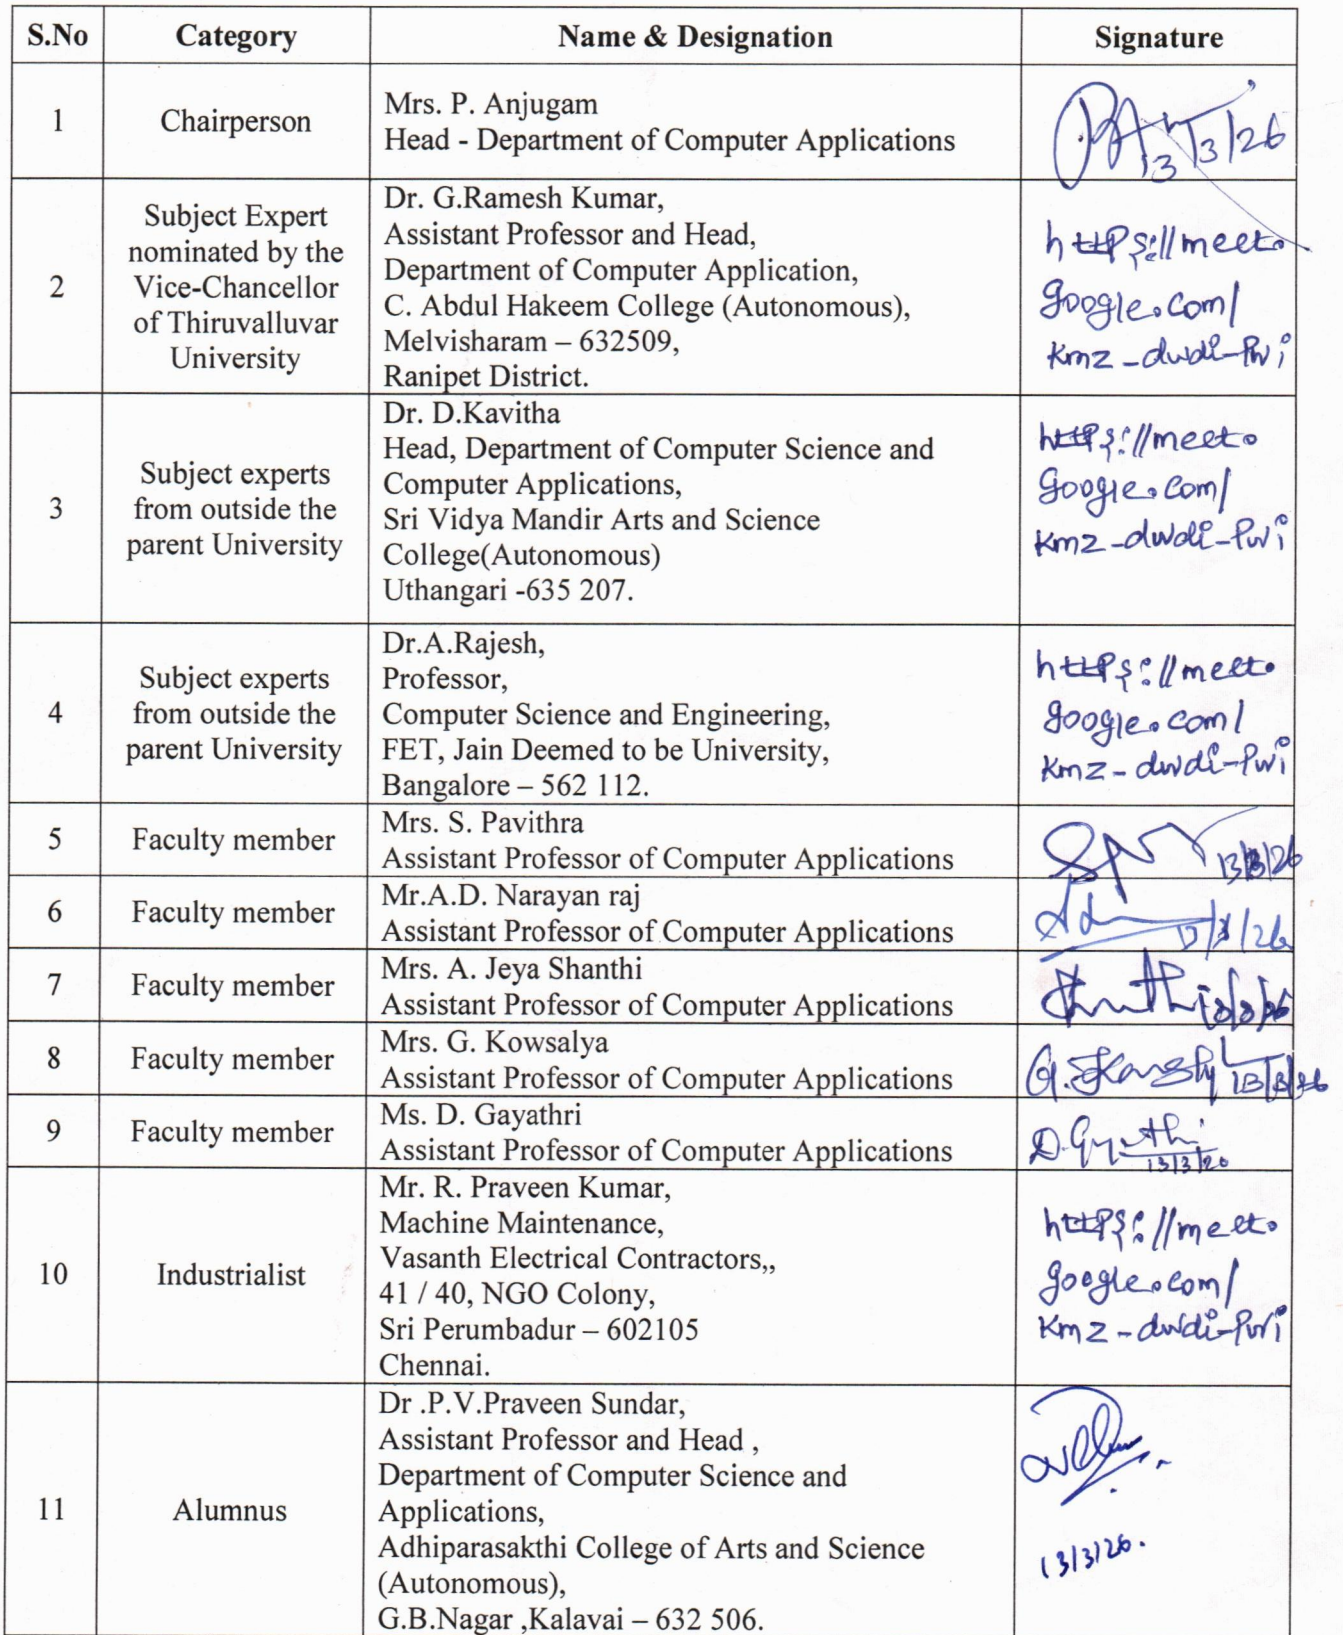 S.No Category Name & Designation Signature
1 Chairperson
Mrs. P. Anjugam
Head - Department of Computer Applications
13/3/26
2
Subject Expert
nominated by the
Vice-Chancellor
of Thiruvalluvar
University
Dr. G.Ramesh Kumar,
Assistant Professor and Head,
Department of Computer Application,
C. Abdul Hakeem College (Autonomous),
Melvisharam – 632509,
Ranipet District.
https://meet.
google.com/
kmz-dwdi-pwi
3
Subject experts
from outside the
parent University
Dr. D.Kavitha
Head, Department of Computer Science and
Computer Applications,
Sri Vidya Mandir Arts and Science
College(Autonomous)
Uthangari -635 207.
https://meet.
google.com/
kmz-dwdi-pwi
4
Subject experts
from outside the
parent University
Dr.A.Rajesh,
Professor,
Computer Science and Engineering,
FET, Jain Deemed to be University,
Bangalore – 562 112.
https://meet.
google.com/
kmz-dwdi-pwi
5 Faculty member
Mrs. S. Pavithra
Assistant Professor of Computer Applications
13/3/26
6 Faculty member
Mr.A.D. Narayan raj
Assistant Professor of Computer Applications
13/3/26
7 Faculty member
Mrs. A. Jeya Shanthi
Assistant Professor of Computer Applications
13/3/26
8 Faculty member
Mrs. G. Kowsalya
Assistant Professor of Computer Applications
13/3/26
9 Faculty member
Ms. D. Gayathri
Assistant Professor of Computer Applications
13/3/26
10 Industrialist
Mr. R. Praveen Kumar,
Machine Maintenance,
Vasanth Electrical Contractors,,
41 / 40, NGO Colony,
Sri Perumbadur – 602105
Chennai.
https://meet.
google.com/
kmz-dwdi-pwi
11 Alumnus
Dr .P.V.Praveen Sundar,
Assistant Professor and Head ,
Department of Computer Science and
Applications,
Adhiparasakthi College of Arts and Science
(Autonomous),
G.B.Nagar ,Kalavai – 632 506.
13/3/26.